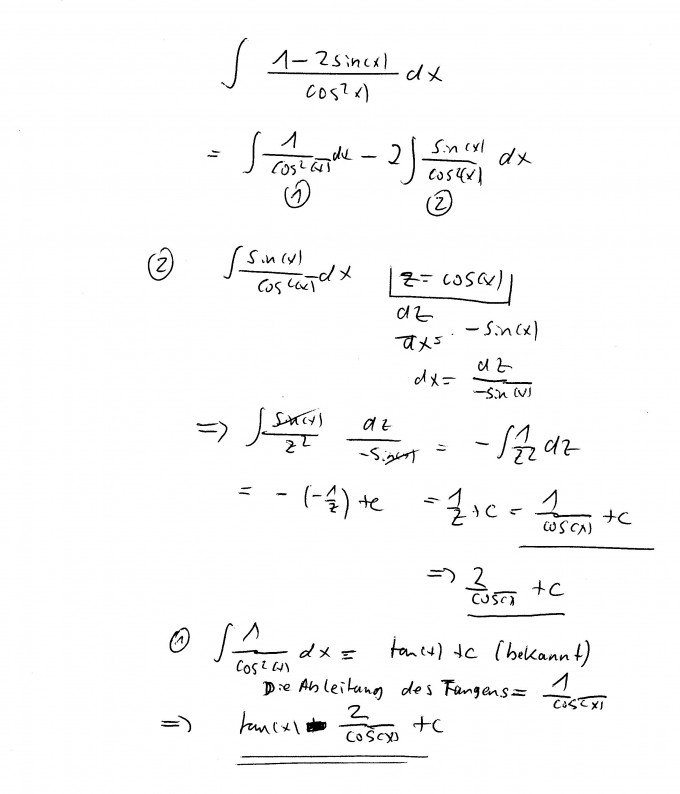 ∫ (1 – 2 sin(x)) / (cos²x)) dx
= ∫ 1 / cos²(x) dx – 2 ∫ sin(x) / cos²(x) dx
① ②
② ∫ sin(x) / cos²(x) dx z = cos(x)
dz / dx = – sin(x)
dx = dz / – sin(x)
=> ∫ sin(x) / z² dz / – sin(x) = – ∫ 1 / z² dz
= – (– 1/z) + c = 1/z + c = 1 / cos(x) + c
=> 2 / cos(x) + c
① ∫ 1 / cos²(x) dx = tan(x) + c (bekannt)
Die Ableitung des Tangens = 1 / cos²(x)
=> tan(x) – 2 / cos(x) + c